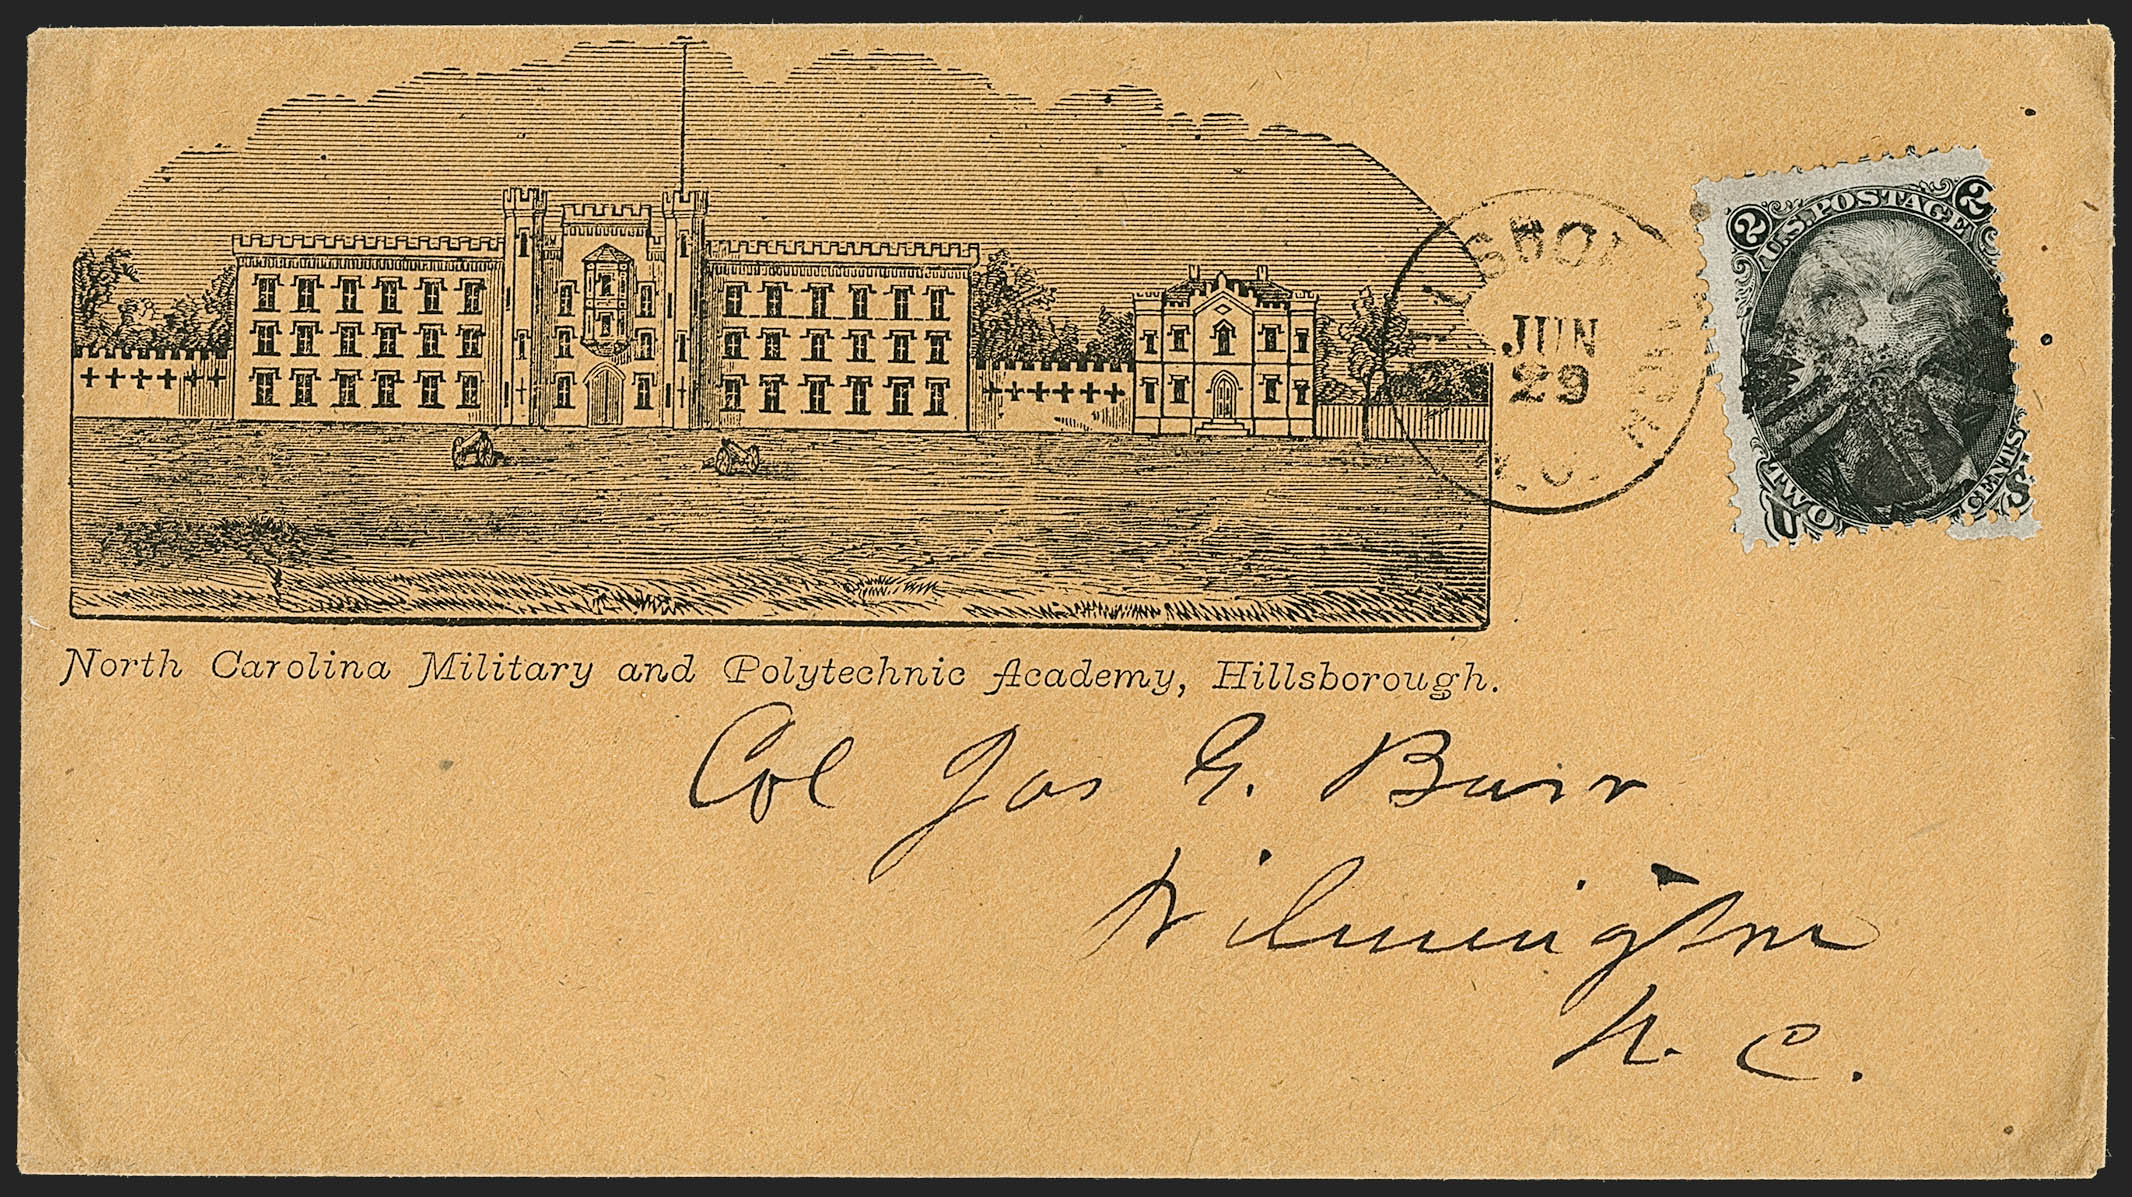 2 U.S. POSTAGE 2
TWO CENTS
JUN
29
North Carolina Military and Polytechnic Academy, Hillsborough.
Col Jas G. Burr
Wilmington
N. C.